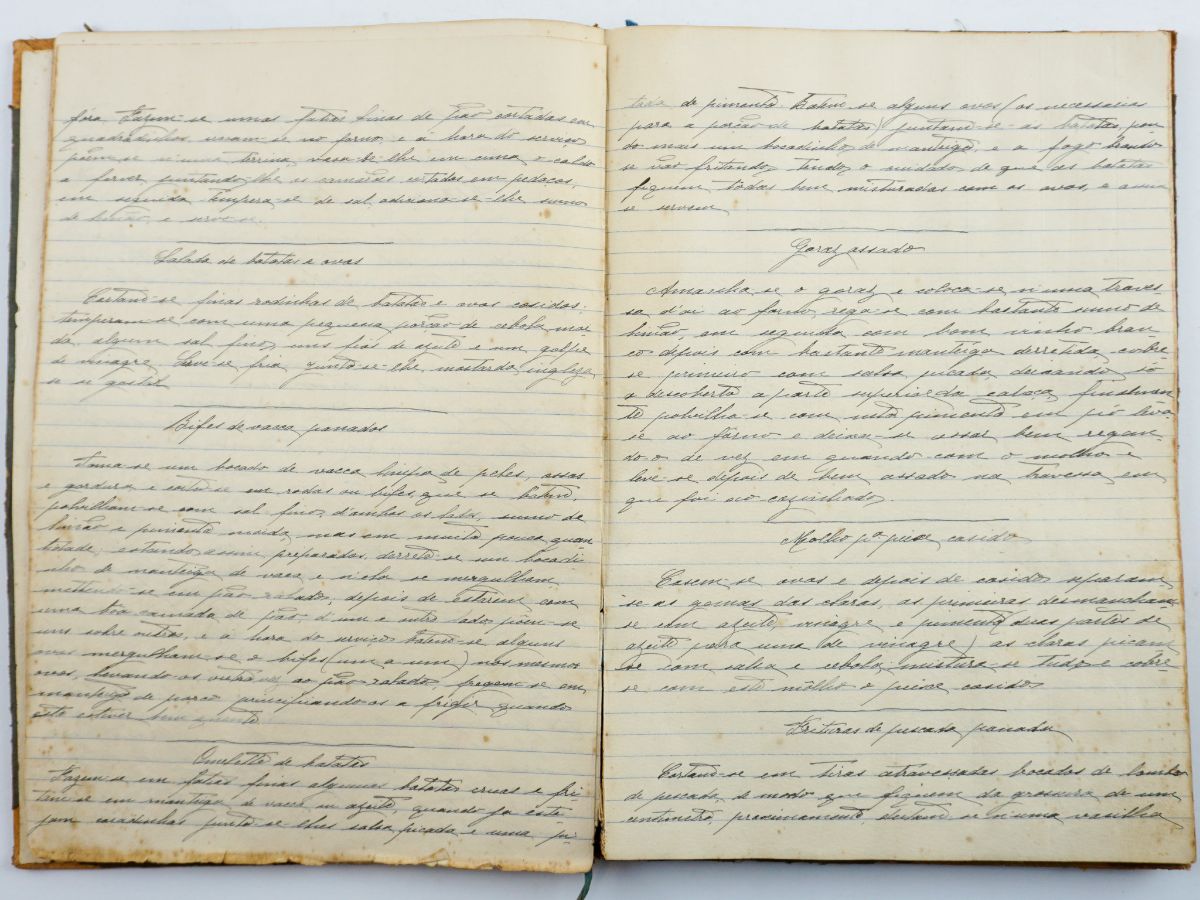 fóra. Fazem-se umas fatias finas de pão cortadas em
quadradinhos, assam-se no forno, e á hora do serviço
põem-se n'uma terrina, vasa-se-lhe em cima o caldo
a ferver, juntando-lhe os camarões cortados em pedaços,
em seguida tempera-se de sal, adiciona-se-lhe sumo
de limão, e serve-se.
Salada de batatas e ovos
Cortam-se finas rodinhas de batatas e ovos cosidos;
temperam-se com uma pequena porção de cebola moi
da, algum sal fino, uns fios de azeite e um golpe
de vinagre. Serve-se fria. Junta-se-lhe mostarda ingleza,
se se gostar
Bifes de vacca panados
Toma-se um bocado de vacca limpa de peles, ossos
e gordura e corta-se em rodas ou bifes, que se batem,
polvilham-se com sal fino, d'ambos os lados, sumo de
limão e pimenta moida, mas em muito pouca quan
tidade; estando assim preparados, derrete-se um bocadi
nho de manteiga de vacca e n'ela se mergulham,
mettendo-se em pão ralado, depois de estarem com
uma bôa camada de pão, d'um e outro lado põem-se
uns sobre outros, e á hora do serviço batem-se alguns
ovos mergulham-se os bifes (um a um) nos mesmos
ovos, levando-os outra vez ao pão ralado, fregem-se em
manteiga de porco principiando-os a frigir quando
esta estiver bem quente
Omelette de batatas
Fazem-se em fatias finas algumas batatas cruas e fri
tam-se em manteiga de vacca ou azeite, quando já este
jam coradinhas junta-se-lhes salsa picada, e uma pi-
tada de pimenta. Batem-se alguns ovos (os necessarios
para a porção de batatas) juntam-se-as batatas, pon
do mais um bocadinho de manteiga, e a fogo brando
se vão fritando, tendo o cuidado de que as batatas
fiquem todas bem misturadas com os ovos, e assim
se servem
Goraz assado
Amanha-se o goraz e coloca-se n'uma traves
sa d'ir ao forno, rega-se com bastante sumo de
limão, em seguida com bom vinho bran
co, depois com bastante manteiga derretida, cobre-
se primeiro com salsa picada, deixando só
a descoberto a parte superior da cabeça, finalmen
te polvilha-se com pimenta em pó leva-
se ao fôrno e deixa-se assar bem regan-
do-o de vez em quando com o molho e
leve-se depois de bem assado na travessa em
que foi ao cozinhado.
Molho pª peixe cosido
Cosem-se ovos e depois de cosidos separam
-se as gemas das claras, as primeiras desmancham
se com azeite, vinagre e pimenta (duas partes de
azeite para uma de vinagre) as claras picam
se com salsa e cebola, mistura-se tudo e cobre-
se com este môlho o peixe cosido
Frituras de pescada panada
Cortam-se em tiras atravessadas bocados de lombo
de pescada, de modo que fiquem da grossura de um
centimetro, proximamente, deitam-se n'uma vasilha